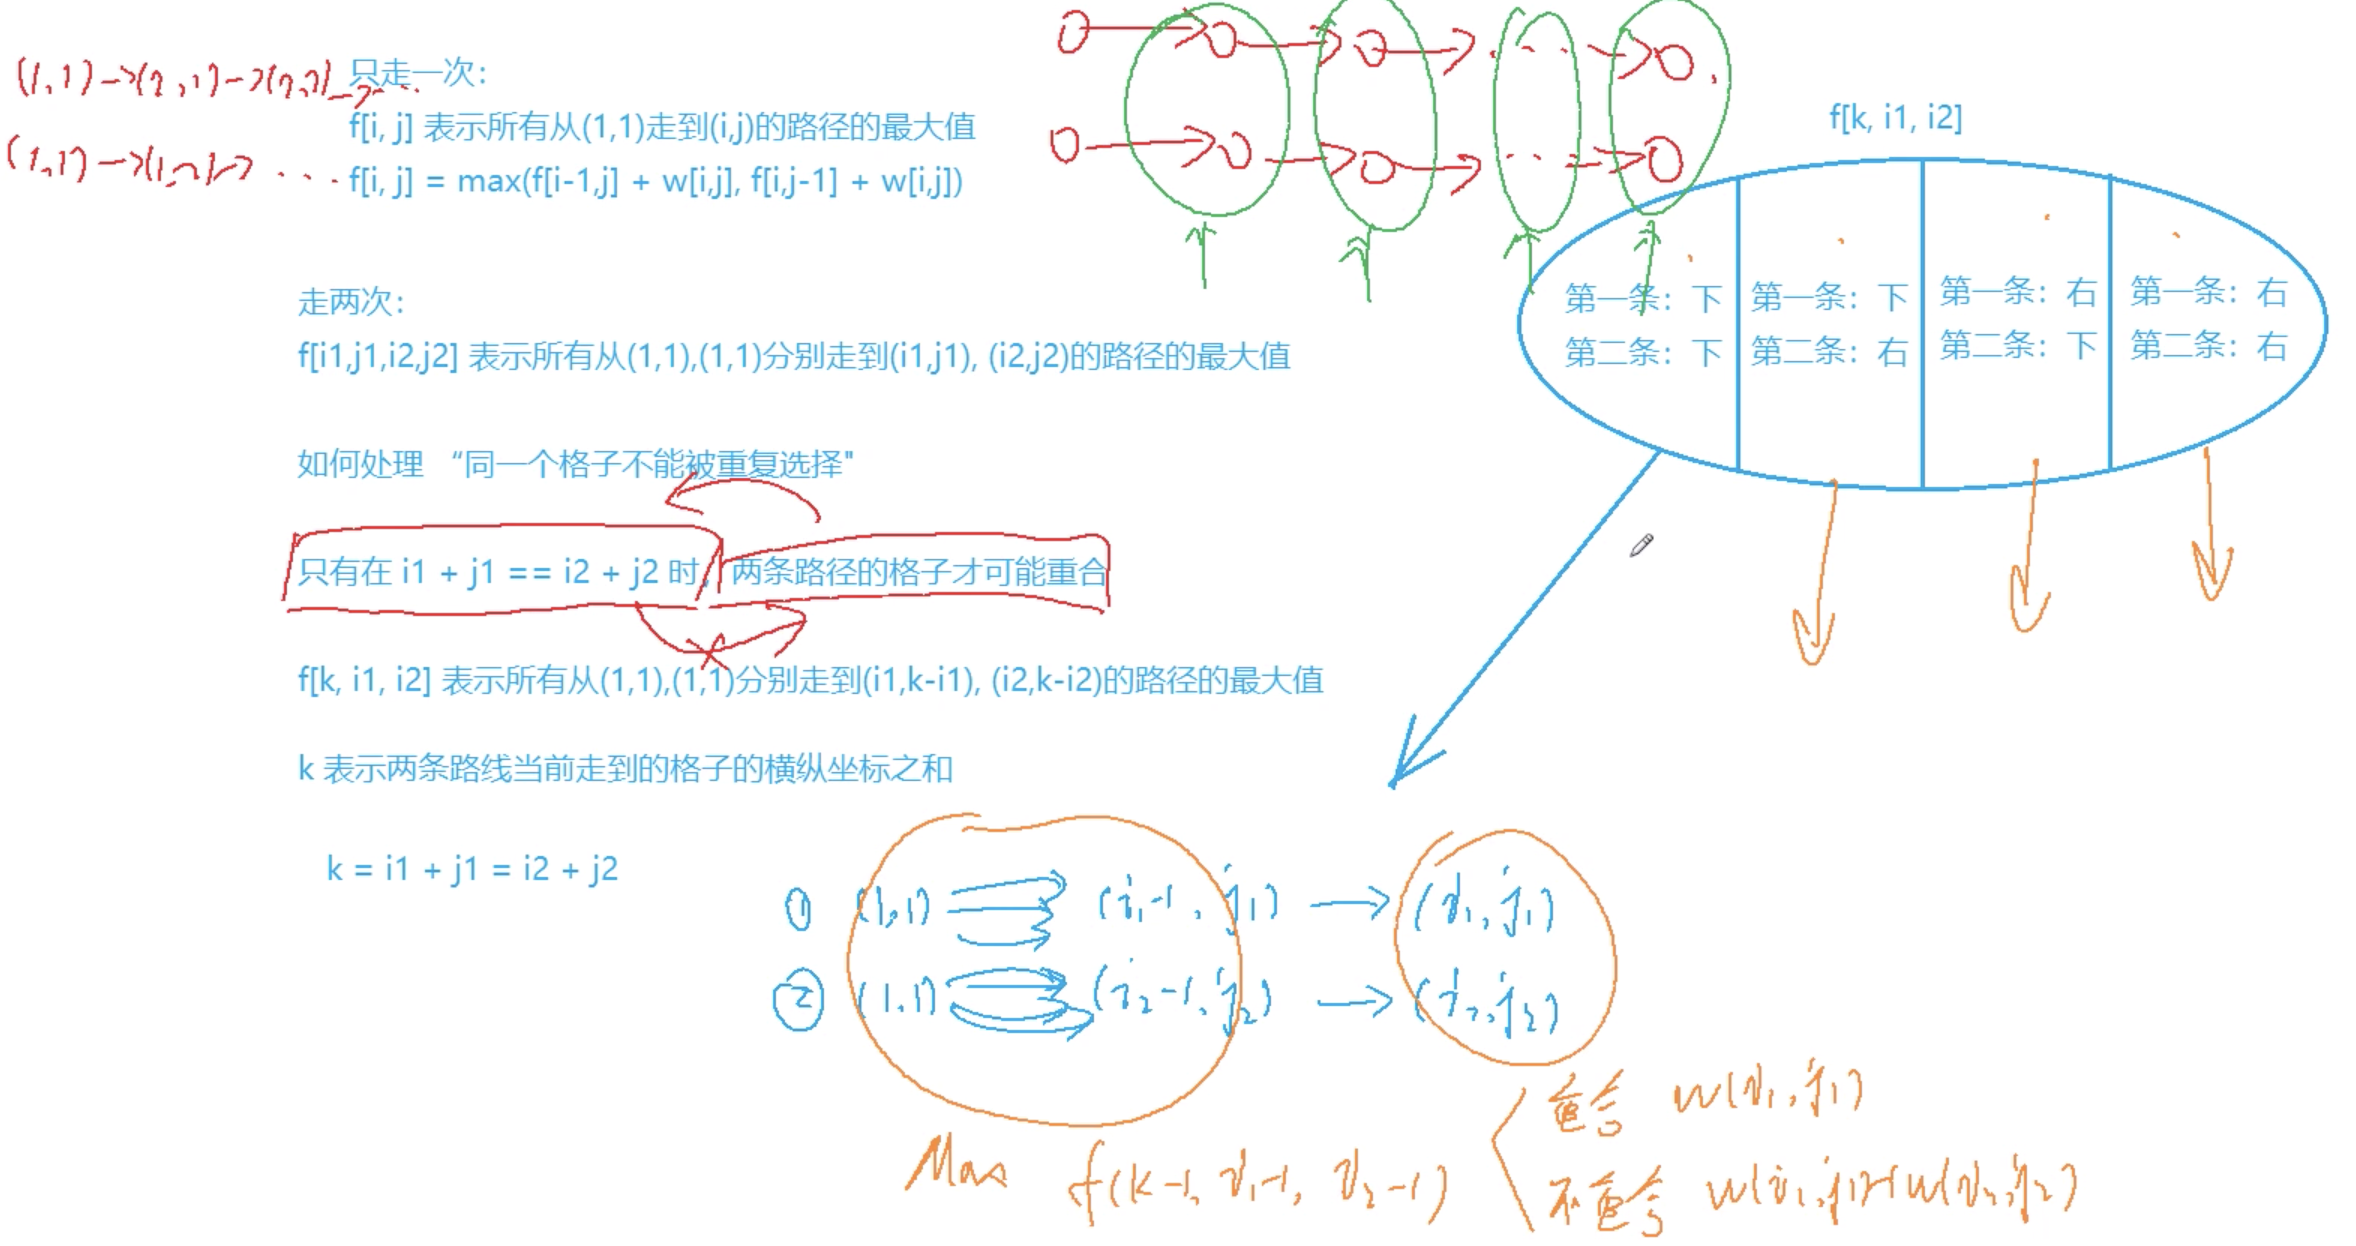 (1,1)→(2,1)→(2,2)→...
(1,1)→(1,2)→...
只走一次：
f[i, j] 表示所有从(1,1)走到(i,j)的路径的最大值
f[i, j] = max(f[i-1,j] + w[i,j], f[i,j-1] + w[i,j])
走两次：
f[i1,j1,i2,j2] 表示所有从(1,1),(1,1)分别走到(i1,j1), (i2,j2)的路径的最大值
如何处理 “同一个格子不能被重复选择"
只有在 i1 + j1 == i2 + j2 时，两条路径的格子才可能重合
f[k, i1, i2] 表示所有从(1,1),(1,1)分别走到(i1,k-i1), (i2,k-i2)的路径的最大值
k 表示两条路线当前走到的格子的横纵坐标之和
k = i1 + j1 = i2 + j2
f[k, i1, i2]
第一条：下
第二条：下
第一条：下
第二条：右
第一条：右
第二条：下
第一条：右
第二条：右
① (1,1) (i₁-1, j₁) → (i₁, j₁)
② (1,1) (i₂-1, j₂) → (i₂, j₂)
Max f(k-1, i₁-1, i₂-1)
重合 w(i₁, j₁)
不重合 w(i₁, j₁)+w(i₂, j₂)